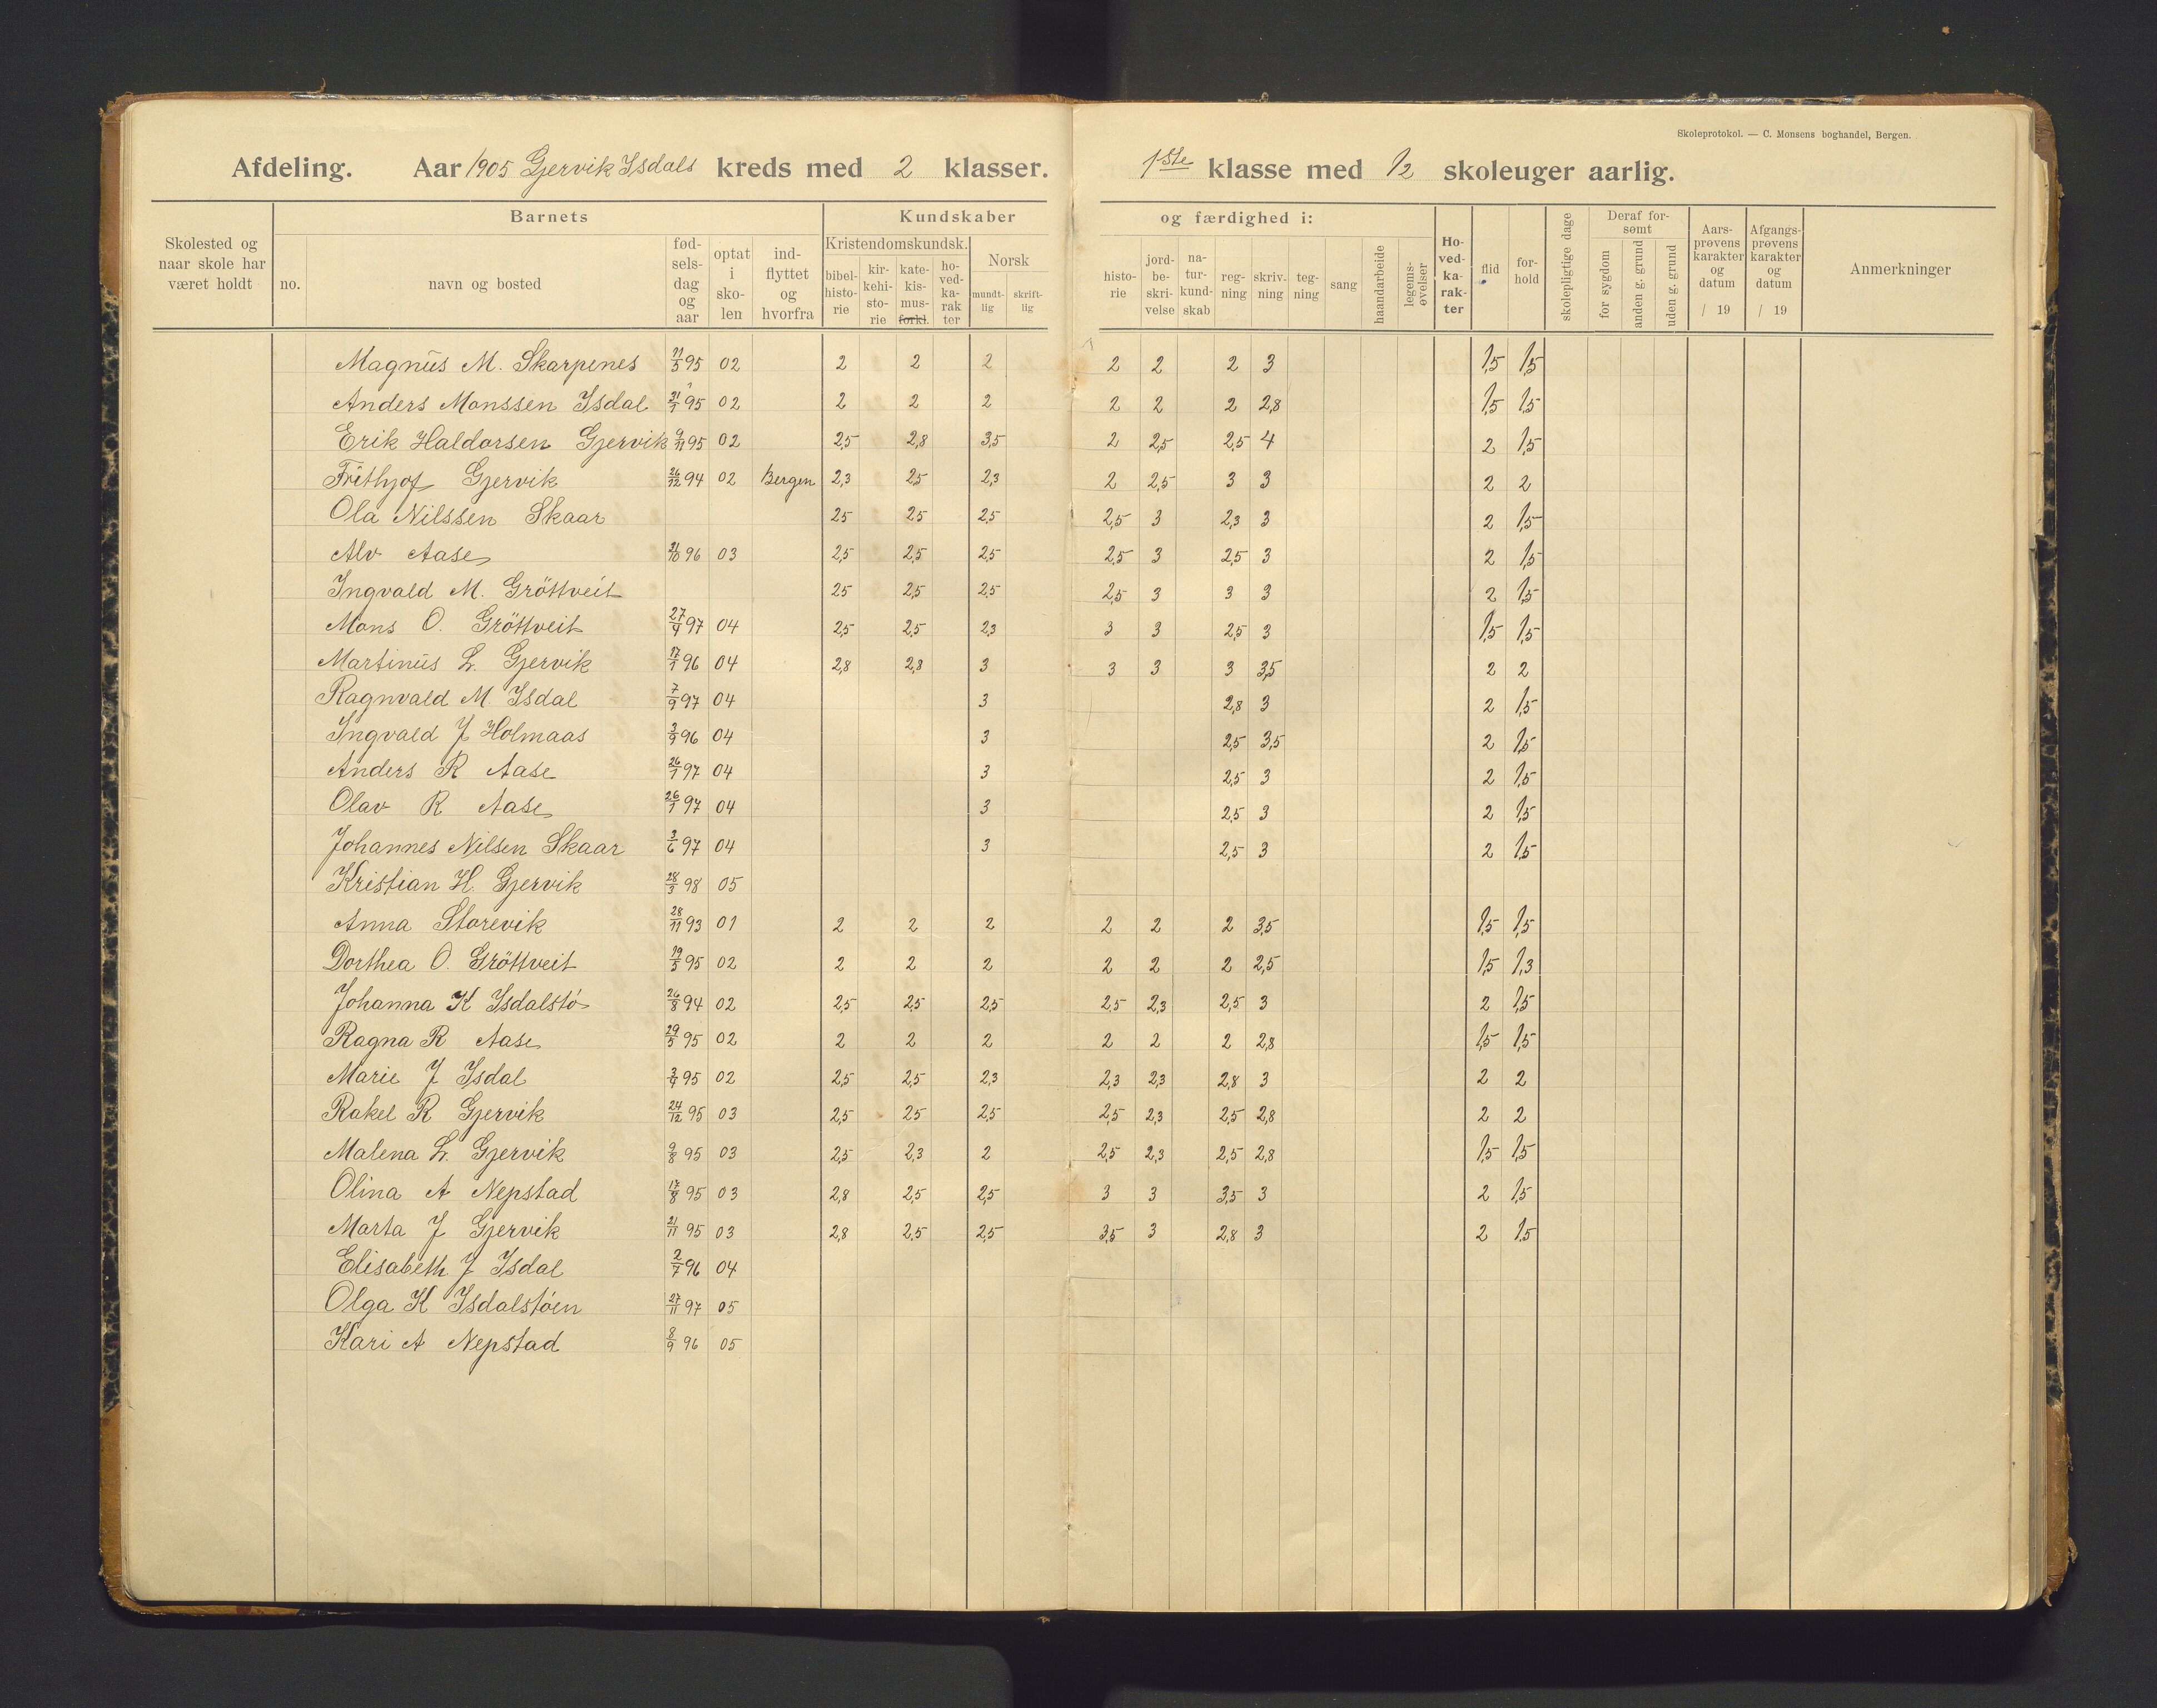 Skoleprotokol. — C. Monsens boghandel, Bergen.
Afdeling. Aar 1905 Gjervik Isdals kreds med 2 klasser. 1ste klasse med 12 skoleuger aarlig.
Barnets Kundskaber og færdighed i:
Skolested og naar skole har været holdt
no.
navn og bosted
fødselsdag og aar
optat i skolen
indflyttet og hvorfra
Kristendomskundsk.
bibelhistorie
kirkehistorie
katekismusforkl.
hovedkarakter
Norsk
mundtlig
skriftlig
historie
jordbeskrivelse
naturkundskab
regning
skrivning
tegning
sang
haandarbeide
legemsøvelser
Hovedkarakter
flid
forhold
skolepligtige dage
Deraf forsømt
for sygdom
anden g. grund
uden g. grund
Aarsprøvens karakter og datum / 19
Afgangsprøvens karakter og datum / 19
Anmerkninger
Magnus M. Skarpenes 11/5 95 02 2 2 2 2 2 2 3 1,5 1,5
Anders Monssen Isdal 21/1 95 02 2 2 2 2 2 2 2,8 1,5 1,5
Erik Haldorsen Gjervik 9/11 95 02 2,5 2,8 3,5 2 2,5 2,5 4 2 1,5
Frithjof Gjervik 26/12 94 02 Bergen 2,3 2,5 2,3 2 2,5 3 3 2 2
Ola Nilssen Skaar 2,5 2,5 2,5 2,5 3 2,3 3 2 1,5
Alv Aase 21/10 96 03 2,5 2,5 2,5 2,5 3 2,5 3 2 1,5
Ingvald M. Gröttveit 2,5 2,5 2,5 2,5 3 3 3 2 1,5
Mons O. Gröttveit 27/4 97 04 2,5 2,5 2,3 3 3 2,5 3 1,5 1,5
Martinus L. Gjervik 17/1 96 04 2,8 2,8 3 3 3 3 3,5 2 2
Ragnvald M. Isdal 7/9 97 04 3 2,8 3 2 1,5
Ingvald J Holmaas 3/9 96 04 3 2,5 3,5 2 1,5
Anders R Aase 26/1 97 04 3 2,5 3 2 1,5
Olav R Aase 26/1 97 04 3 2,5 3 2 1,5
Johannes Nilsen Skaar 3/6 97 04 3 2,5 3 2 1,5
Kristian H. Gjervik 28/3 98 05
Anna Storevik 28/11 93 01 2 2 2 2 2 2 3,5 1,5 1,5
Dorthea O. Gröttveit 19/5 95 02 2 2 2 2 2 2 2,5 1,5 1,3
Johanna K Isdalstö 26/8 94 02 2,5 2,5 2,5 2,5 2,3 2,5 3 2 1,5
Ragna R Aase 29/5 95 02 2 2 2 2 2 2 2,8 1,5 1,5
Marie J Isdal 3/4 95 02 2,5 2,5 2,3 2,3 2,3 2,8 3 2 2
Rakel R Gjervik 24/12 95 03 2,5 2,5 2,5 2,5 2,3 2,5 2,8 2 2
Malena L. Gjervik 9/8 95 03 2,5 2,3 2 2,5 2,3 2,5 2,8 1,5 1,5
Olina A Nepstad 17/8 95 03 2,8 2,5 2,5 3 3 3,5 3 2 1,5
Marta J Gjervik 21/11 95 03 2,8 2,5 2,5 3,5 3 2,8 3 2 1,5
Elisabeth J Isdal 2/7 96 04
Olga K Isdalstöen 27/11 97 05
Kari A Nepstad 8/9 96 05